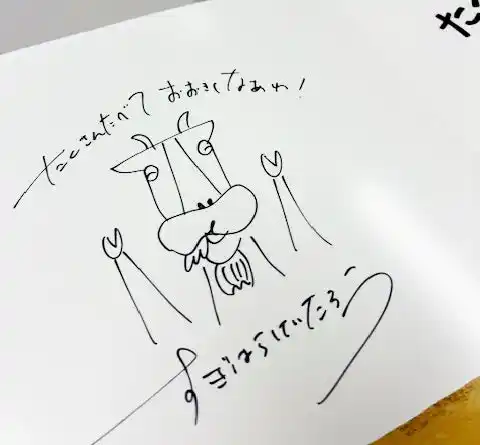 たくさんたべて おおきくなあれ！
すぎはらけいたろう